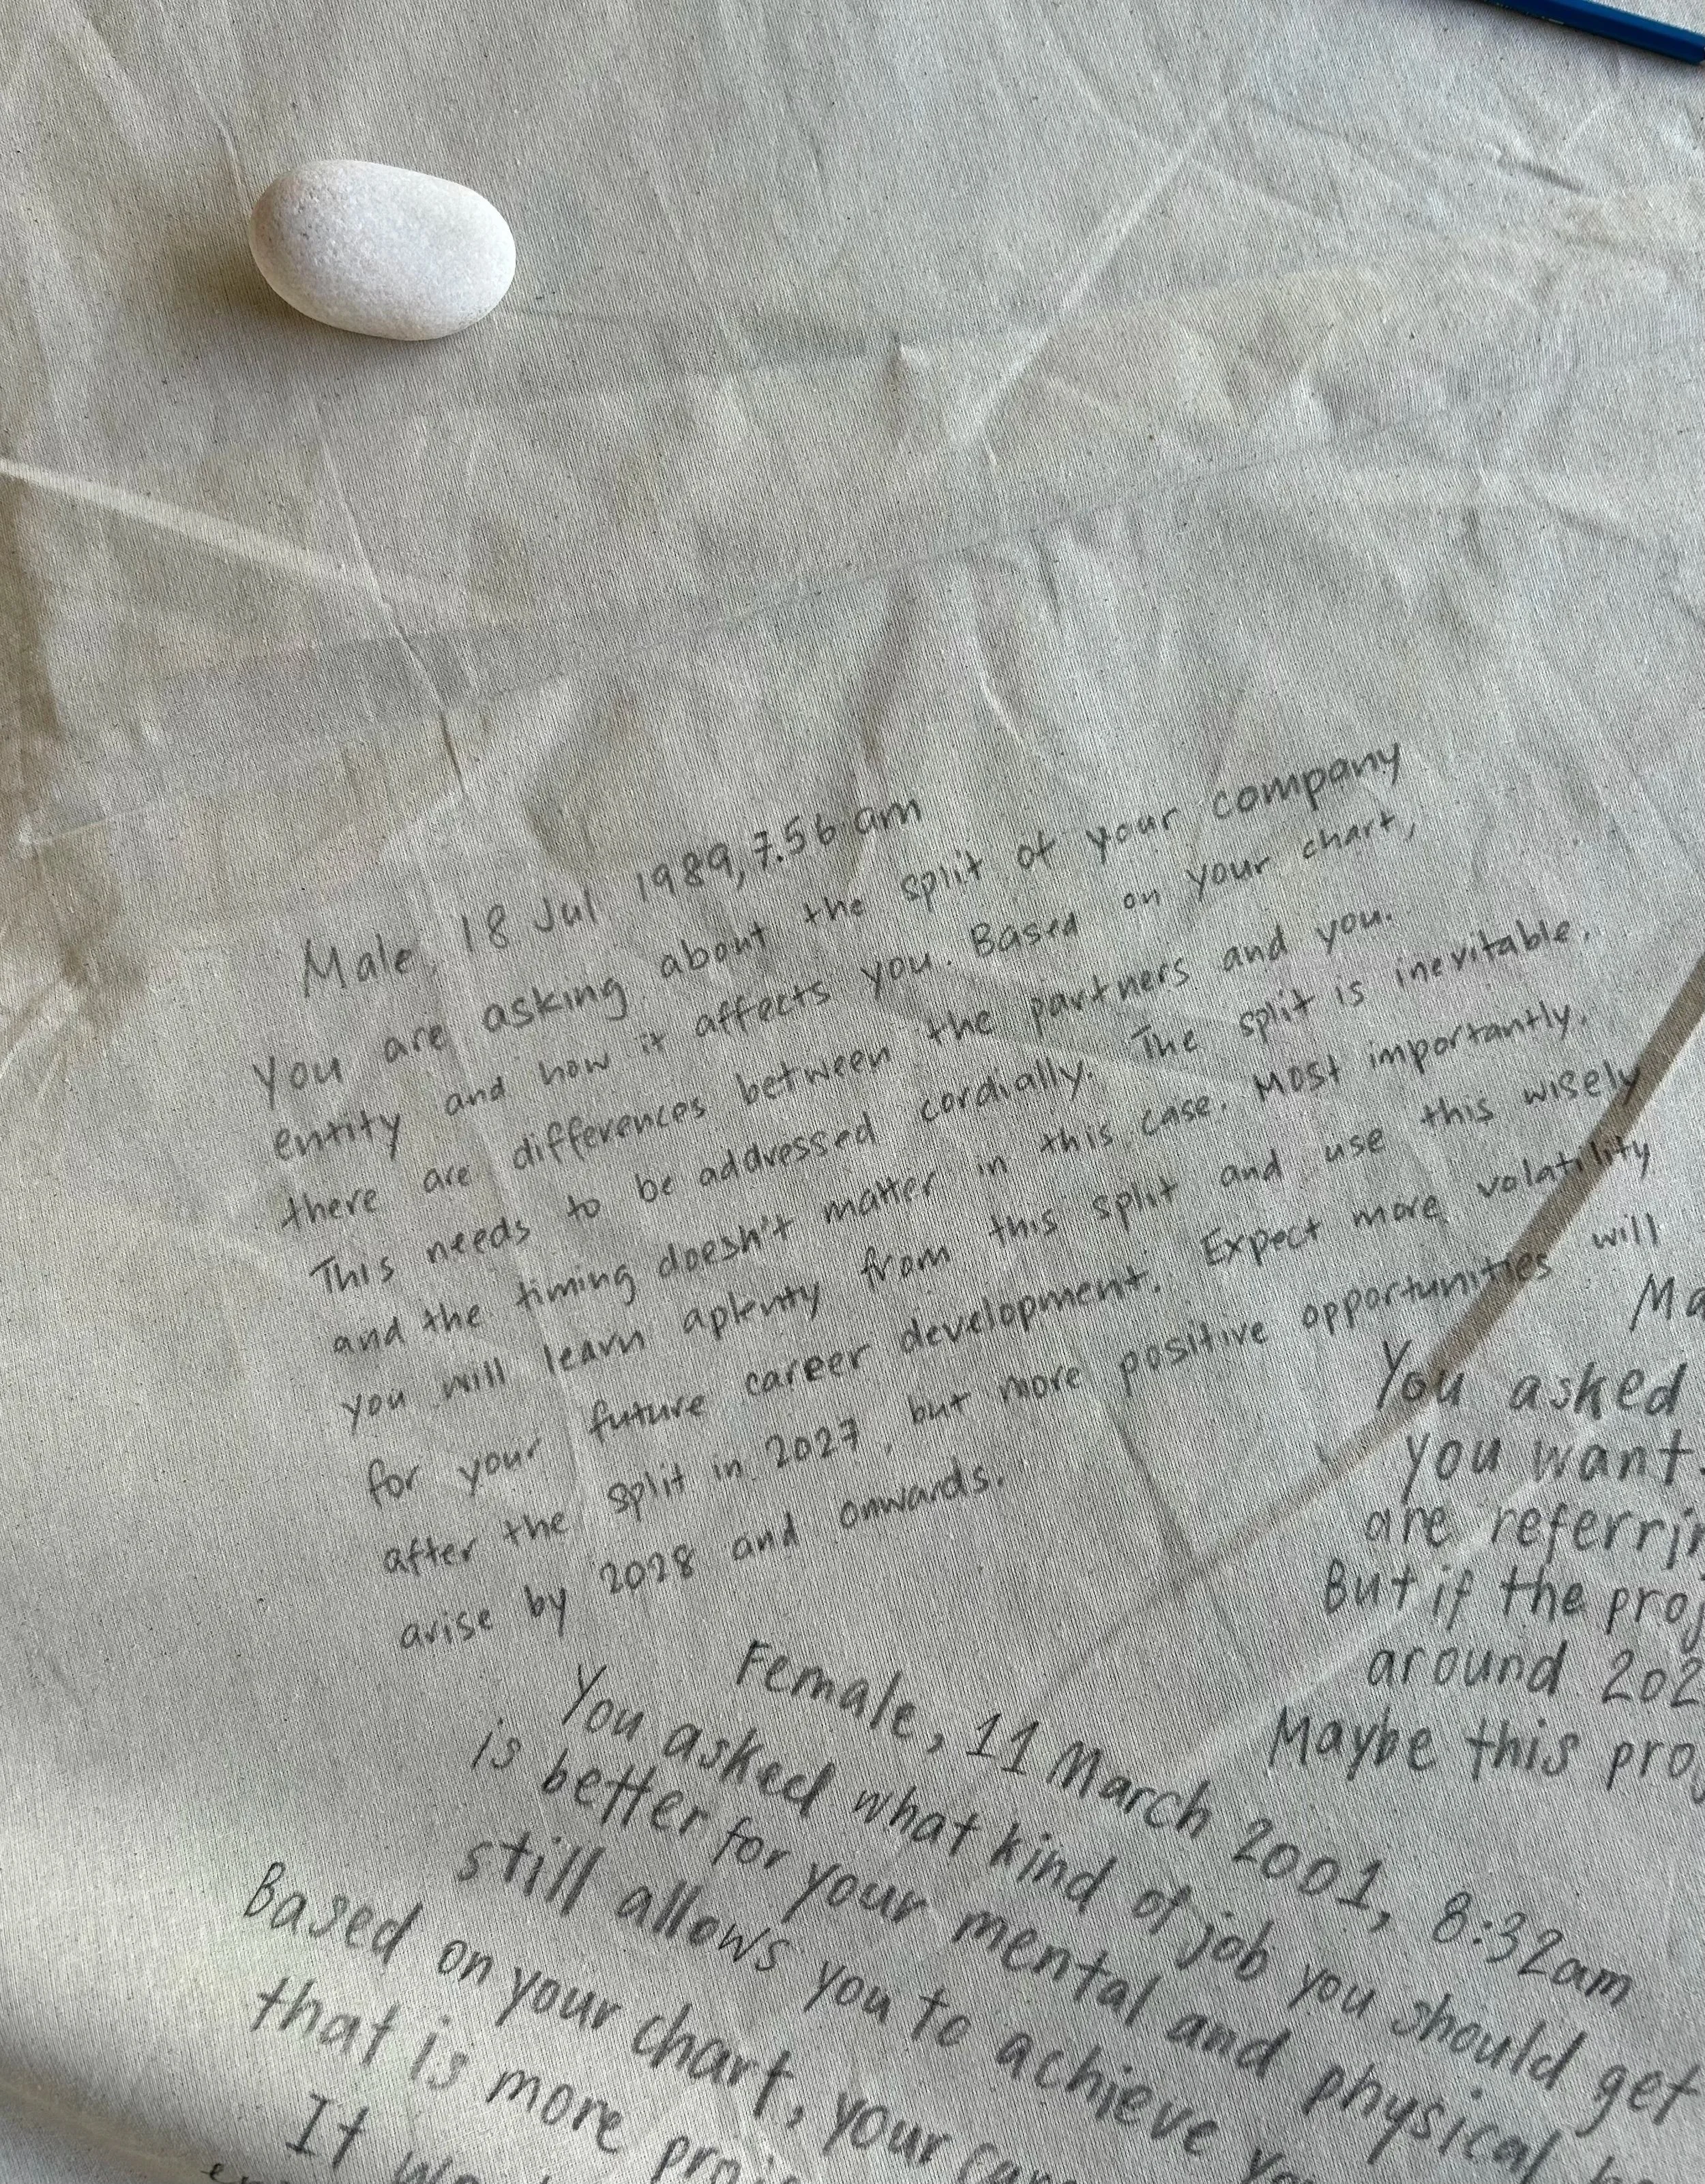 Male, 18 Jul 1989, 7.56 am
You are asking about the split of your company
entity and how it affects you. Based on your chart,
there are differences between the partners and you.
This needs to be addressed cordially. The split is inevitable,
and the timing doesn't matter in this case. Most importantly,
you will learn aplenty from this split and use this wisely
for your future career development. Expect more volatility
after the split in 2027, but more positive opportunities will
arise by 2028 and onwards.
Female, 11 March 2001, 8:32am
You asked what kind of job you should get
is better for your mental and physical
still allows you to achieve
Based on your chart, your
that is more
It
You asked
you want
are
But if the
around
Maybe this